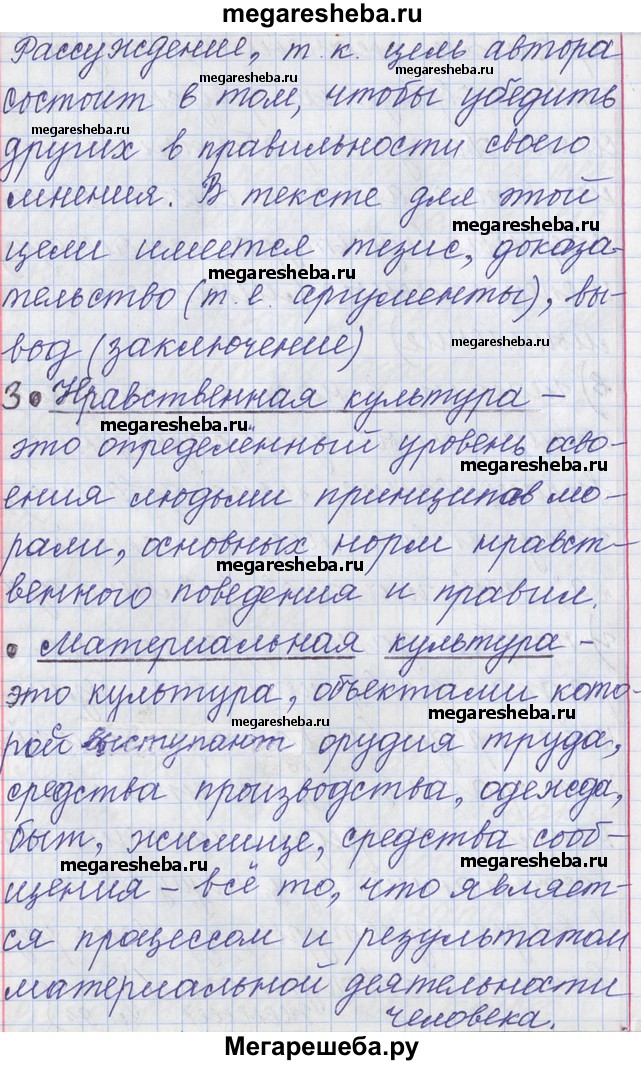 megaresheba.ru
Рассуждение, т. к. цель автора
megaresheba.ru megaresheba.ru
состоит в том, чтобы убедить
megaresheba.ru
других в правильности своего
мнения. В тексте для этой
megaresheba.ru
цели имеется тезис, доказа-
megaresheba.ru
тельство (т. е. аргументы), вы-
вод (заключение)
3. Нравственная культура –
megaresheba.ru megaresheba.ru
это определённый уровень осво-
megaresheba.ru
ения людьми принципов мо-
рали, основных норм нравст-
megaresheba.ru
венного поведения и правил.
• Материальная культура –
это культура, объектами кото-
megaresheba.ru megaresheba.ru
рой выступают орудия труда,
средства производства, одежда,
быт, жилище, средства сооб-
megaresheba.ru megaresheba.ru
щения – всё то, что являет-
ся процессом и результатом
материальной деятельности
человека.
Мегарешеба.ру